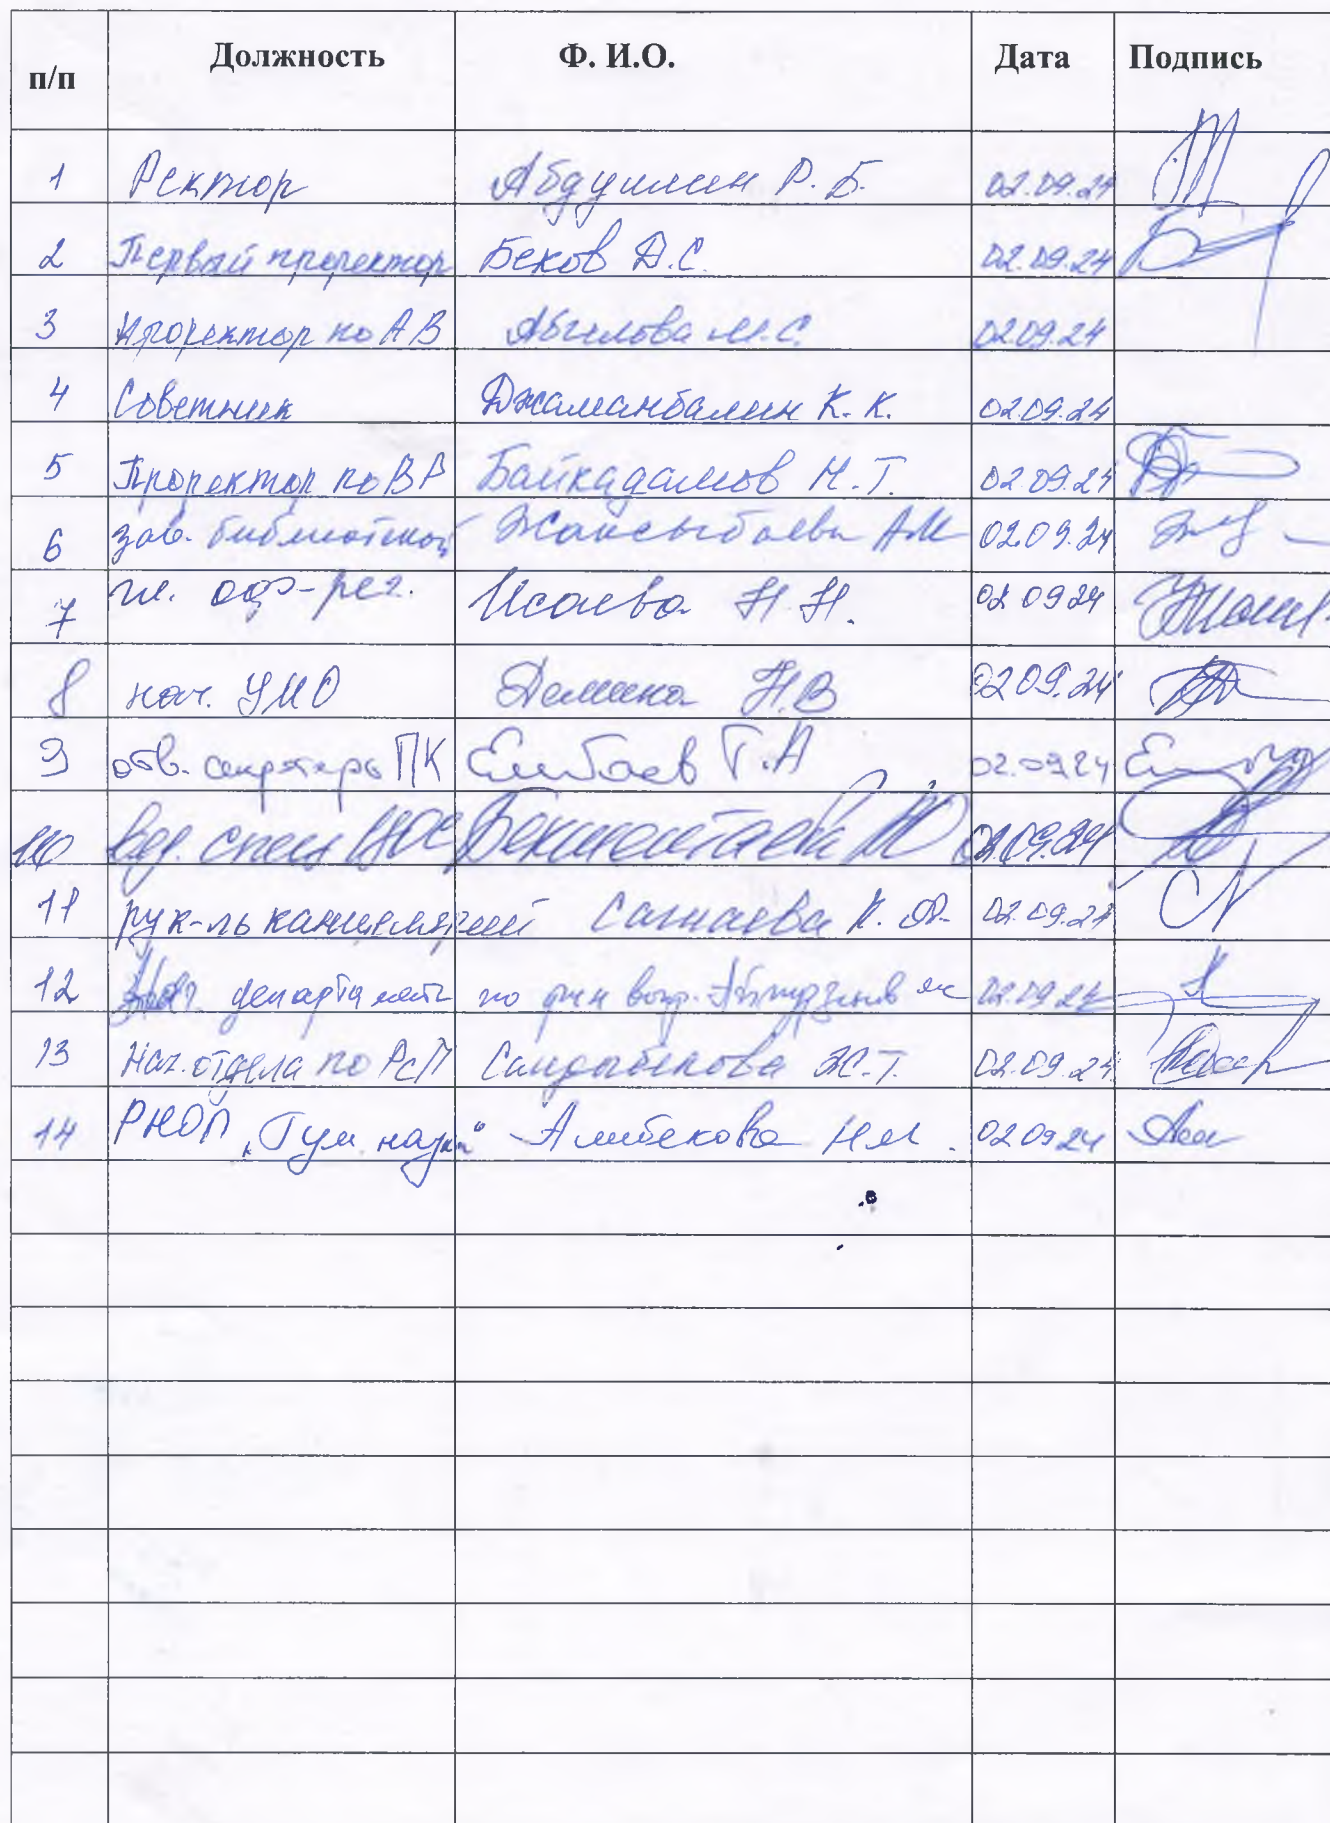 п/п Должность Ф. И.О. Дата Подпись
1 Ректор Абдушин Р. Б. 02.09.24
2 Первый проректор Беков Д.С. 02.09.24
3 Проректор по АВ Абилова М.С. 02.09.24
4 Советник Джаманбалин К. К. 02.09.24
5 Проректор по ВР Байкадамов Н.Т. 02.09.24
6 зав. библиотекой Жаксыбаева АМ 02.09.24
7 гл. оф-рег. Исаева Н.Н. 02 09 24
8 нач. УМО Демина Н.В 02 09.24
9 отв. секретарь ПК Елибаев Т.А 02.09.24
10 вед. спец 02.09.24
11 рук-ль канцелярией Сагнаева К. А. 02.09.24
12 департамента по фин вопр. 02.09.24
13 Нач. отдела по РсП Саидабекова Ж.Т. 02.09.24
14 РНОП „Гум науки“ Алибекова Н.М. 02 09 24